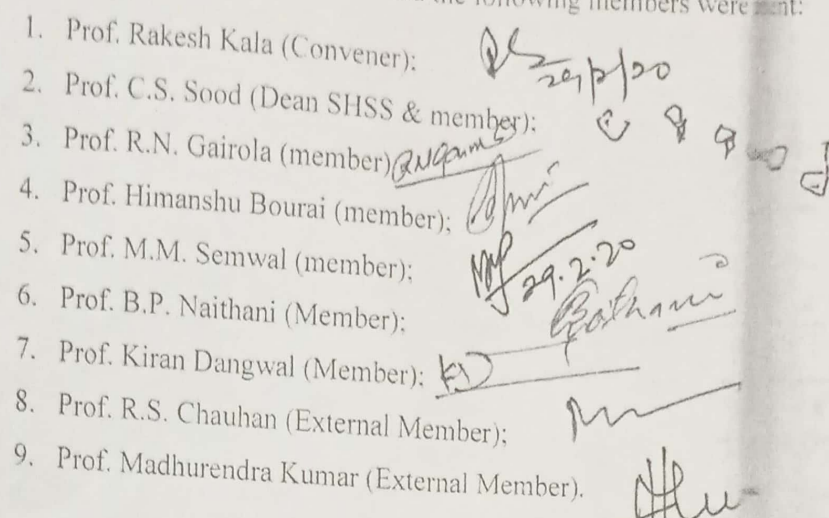 following members were
1. Prof. Rakesh Kala (Convener):
29/2/20
2. Prof. C.S. Sood (Dean SHSS & member);
3. Prof. R.N. Gairola (member)
4. Prof. Himanshu Bourai (member);
5. Prof. M.M. Semwal (member);
29.2.20
6. Prof. B.P. Naithani (Member);
7. Prof. Kiran Dangwal (Member); KD
8. Prof. R.S. Chauhan (External Member);
9. Prof. Madhurendra Kumar (External Member).